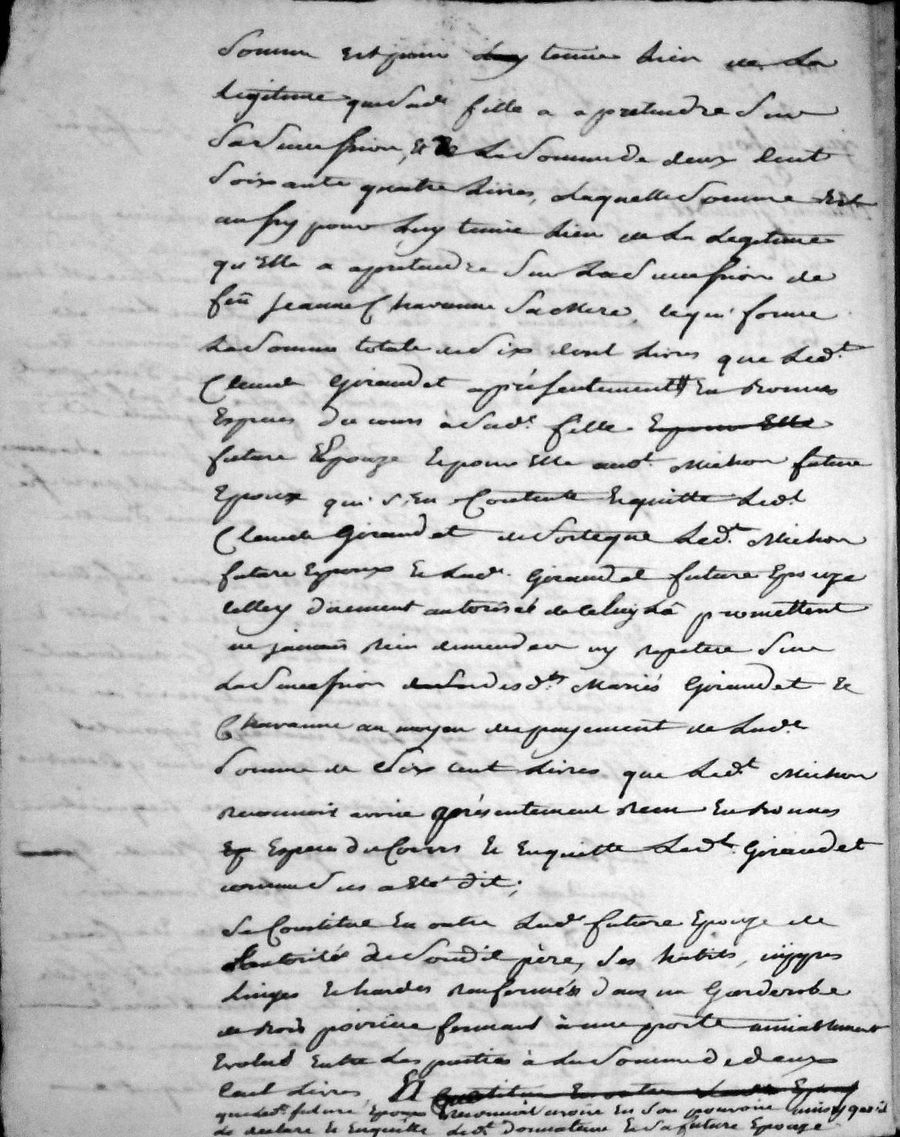 Somme est pour luy tenir lieu de la
legitime que sad. fille a a pretendre sur
sa succession, et la somme de deux cent
soixante quatre livres, laquelle somme est
aussy pour luy tenir lieu de la legitime
qu'Elle a a pretendre sur la succession de
feüe Jeanne Chavanne sa mere, ce qui forme
la somme totale de six cent livres que led.t
Claude Giraudet a présentement en bonnes
Especes du cours à sad. fille et pour Elle
future Epouze et pour Elle aud.t Michon futur
Epoux qui s'en Contente Enquitte led.t
Claude Giraudet de sorte que led.t Michon
futur Epoux et lad. Giraudet future Epouze
celle cy düement autorisée de celuy la promettent
ne jamais rien demander ny repeter sur
la succession desd.ts Mariés Giraudet et
Chavanne au moyen du payement de lad.e
Somme de Six cent livres que led.t Michon
reconnoit avoir présentement recu En bonnes
Especes du Cours et Enquitte led.t Giraudet
comme dessus a eté dit;
Se Constitue En outre lad.e future Epouze de
l'autorité de Sondit père, Ses habits, nippes
linges et hardes renfermés dans un Garderobe
de bois poirier fermant à une porte amiablement
Evalué Entre les parties à la Somme de deux
cent livres, Constitue En outre Epouze
que led.t futur Epoux reconnoit avoir En son pouvoir ainsy qu'il
le declare et Enquitte led.t donnateur et sa future Epouze